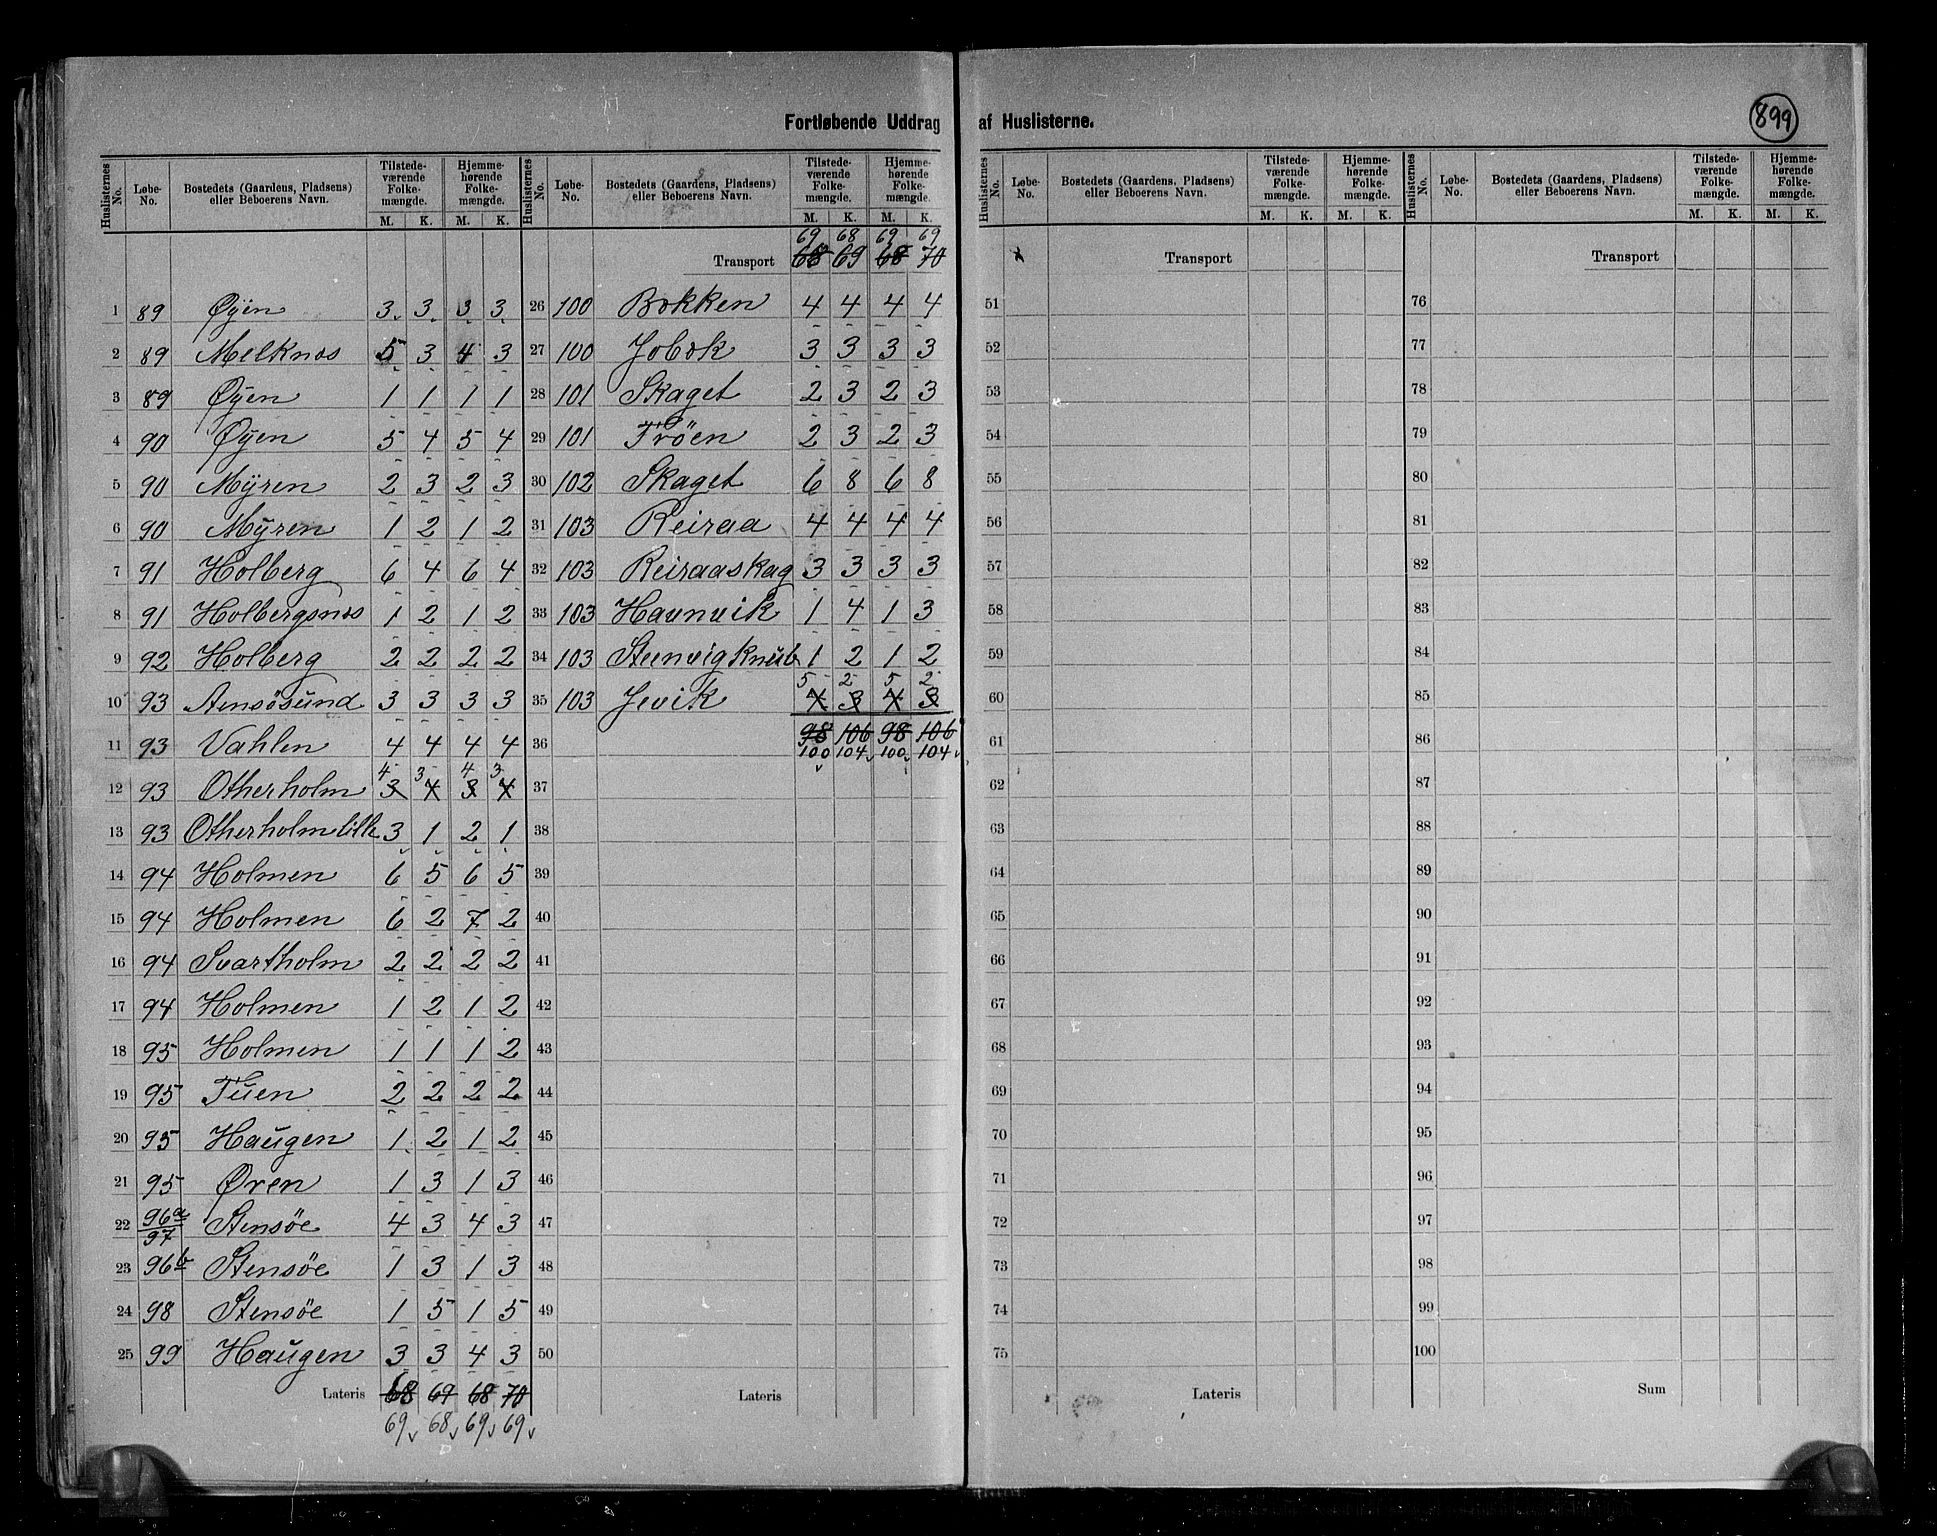 Fortløbende Uddrag af Huslisterne.
899
Huslisternes No. Løbe-No. Bostedets (Gaardens, Pladsens) eller Beboerens Navn. Tilstedeværende Folkemængde. M. K. Hjemmehørende Folkemængde. M. K.
1 89 Øÿen 3 3 3 3
2 89 Melknos 5 3 4 3
3 89 Øÿen 1 1 1 1
4 90 Øÿen 5 4 5 4
5 90 Mÿren 2 3 2 3
6 90 Mÿren 1 2 1 2
7 91 Holberg 6 4 6 4
8 91 Holbergsnes 1 2 1 2
9 92 Holberg 2 2 2 2
10 93 Aensösund 3 3 3 3
11 93 Vahlen 4 4 4 4
4 3 4 3
12 93 Otherholm 3 4 3 4
13 93 Otherholm lille 3 1 2 1
14 94 Holmen 6 5 6 5
15 94 Holmen 6 2 7 2
16 94 Svartholm 2 2 2 2
17 94 Holmen 1 2 1 2
18 95 Holmen 1 1 1 2
19 95 Tuen 2 2 2 2
20 95 Haugen 1 2 1 2
21 95 Øren 1 3 1 3
22 96a/97 Stensöe 4 3 4 3
23 96b Stensøe 1 3 1 3
24 98 Stensøe 1 5 1 5
25 99 Haugen 3 3 4 3
Lateris 68 69 68 70
69 68 69 69
Huslisternes No. Løbe-No. Bostedets (Gaardens, Pladsens) eller Beboerens Navn. Tilstedeværende Folkemængde. M. K. Hjemmehørende Folkemængde. M. K.
69 68 69 69
Transport 68 69 68 70
26 100 Bokken 4 4 4 4
27 100 Jobok 3 3 3 3
28 101 Skaget 2 3 2 3
29 101 Tröen 2 3 2 3
30 102 Skaget 6 8 6 8
31 103 Reiraa 4 4 4 4
32 103 Reiraaskag 3 3 3 3
33 103 Havnvik 1 4 1 3
34 103 Steenvigknub 1 2 1 2
5 2 5 2
35 103 Jevik 4 3 4 3
36 98 106 98 106
100 104 100 104
37
38
39
40
41
42
43
44
45
46
47
48
49
50
Lateris
Huslisternes No. Løbe-No. Bostedets (Gaardens, Pladsens) eller Beboerens Navn. Tilstedeværende Folkemængde. M. K. Hjemmehørende Folkemængde. M. K.
Transport
51
52
53
54
55
56
57
58
59
60
61
62
63
64
65
66
67
68
69
70
71
72
73
74
75
Lateris
Huslisternes No. Løbe-No. Bostedets (Gaardens, Pladsens) eller Beboerens Navn. Tilstedeværende Folkemængde. M. K. Hjemmehørende Folkemængde. M. K.
Transport
76
77
78
79
80
81
82
83
84
85
86
87
88
89
90
91
92
93
94
95
96
97
98
99
100
Sum